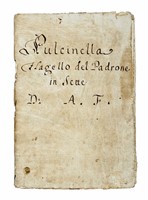 Pulcinella
Flagello del Padrone
in Sette
D: A. F.